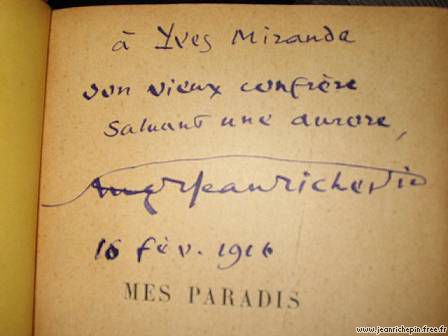 à Yves Mirande
son vieux confrère
saluant une aurore,
Jean Richepin
16 fév. 1916
MES PARADIS
www.jeanrichepin.free.fr